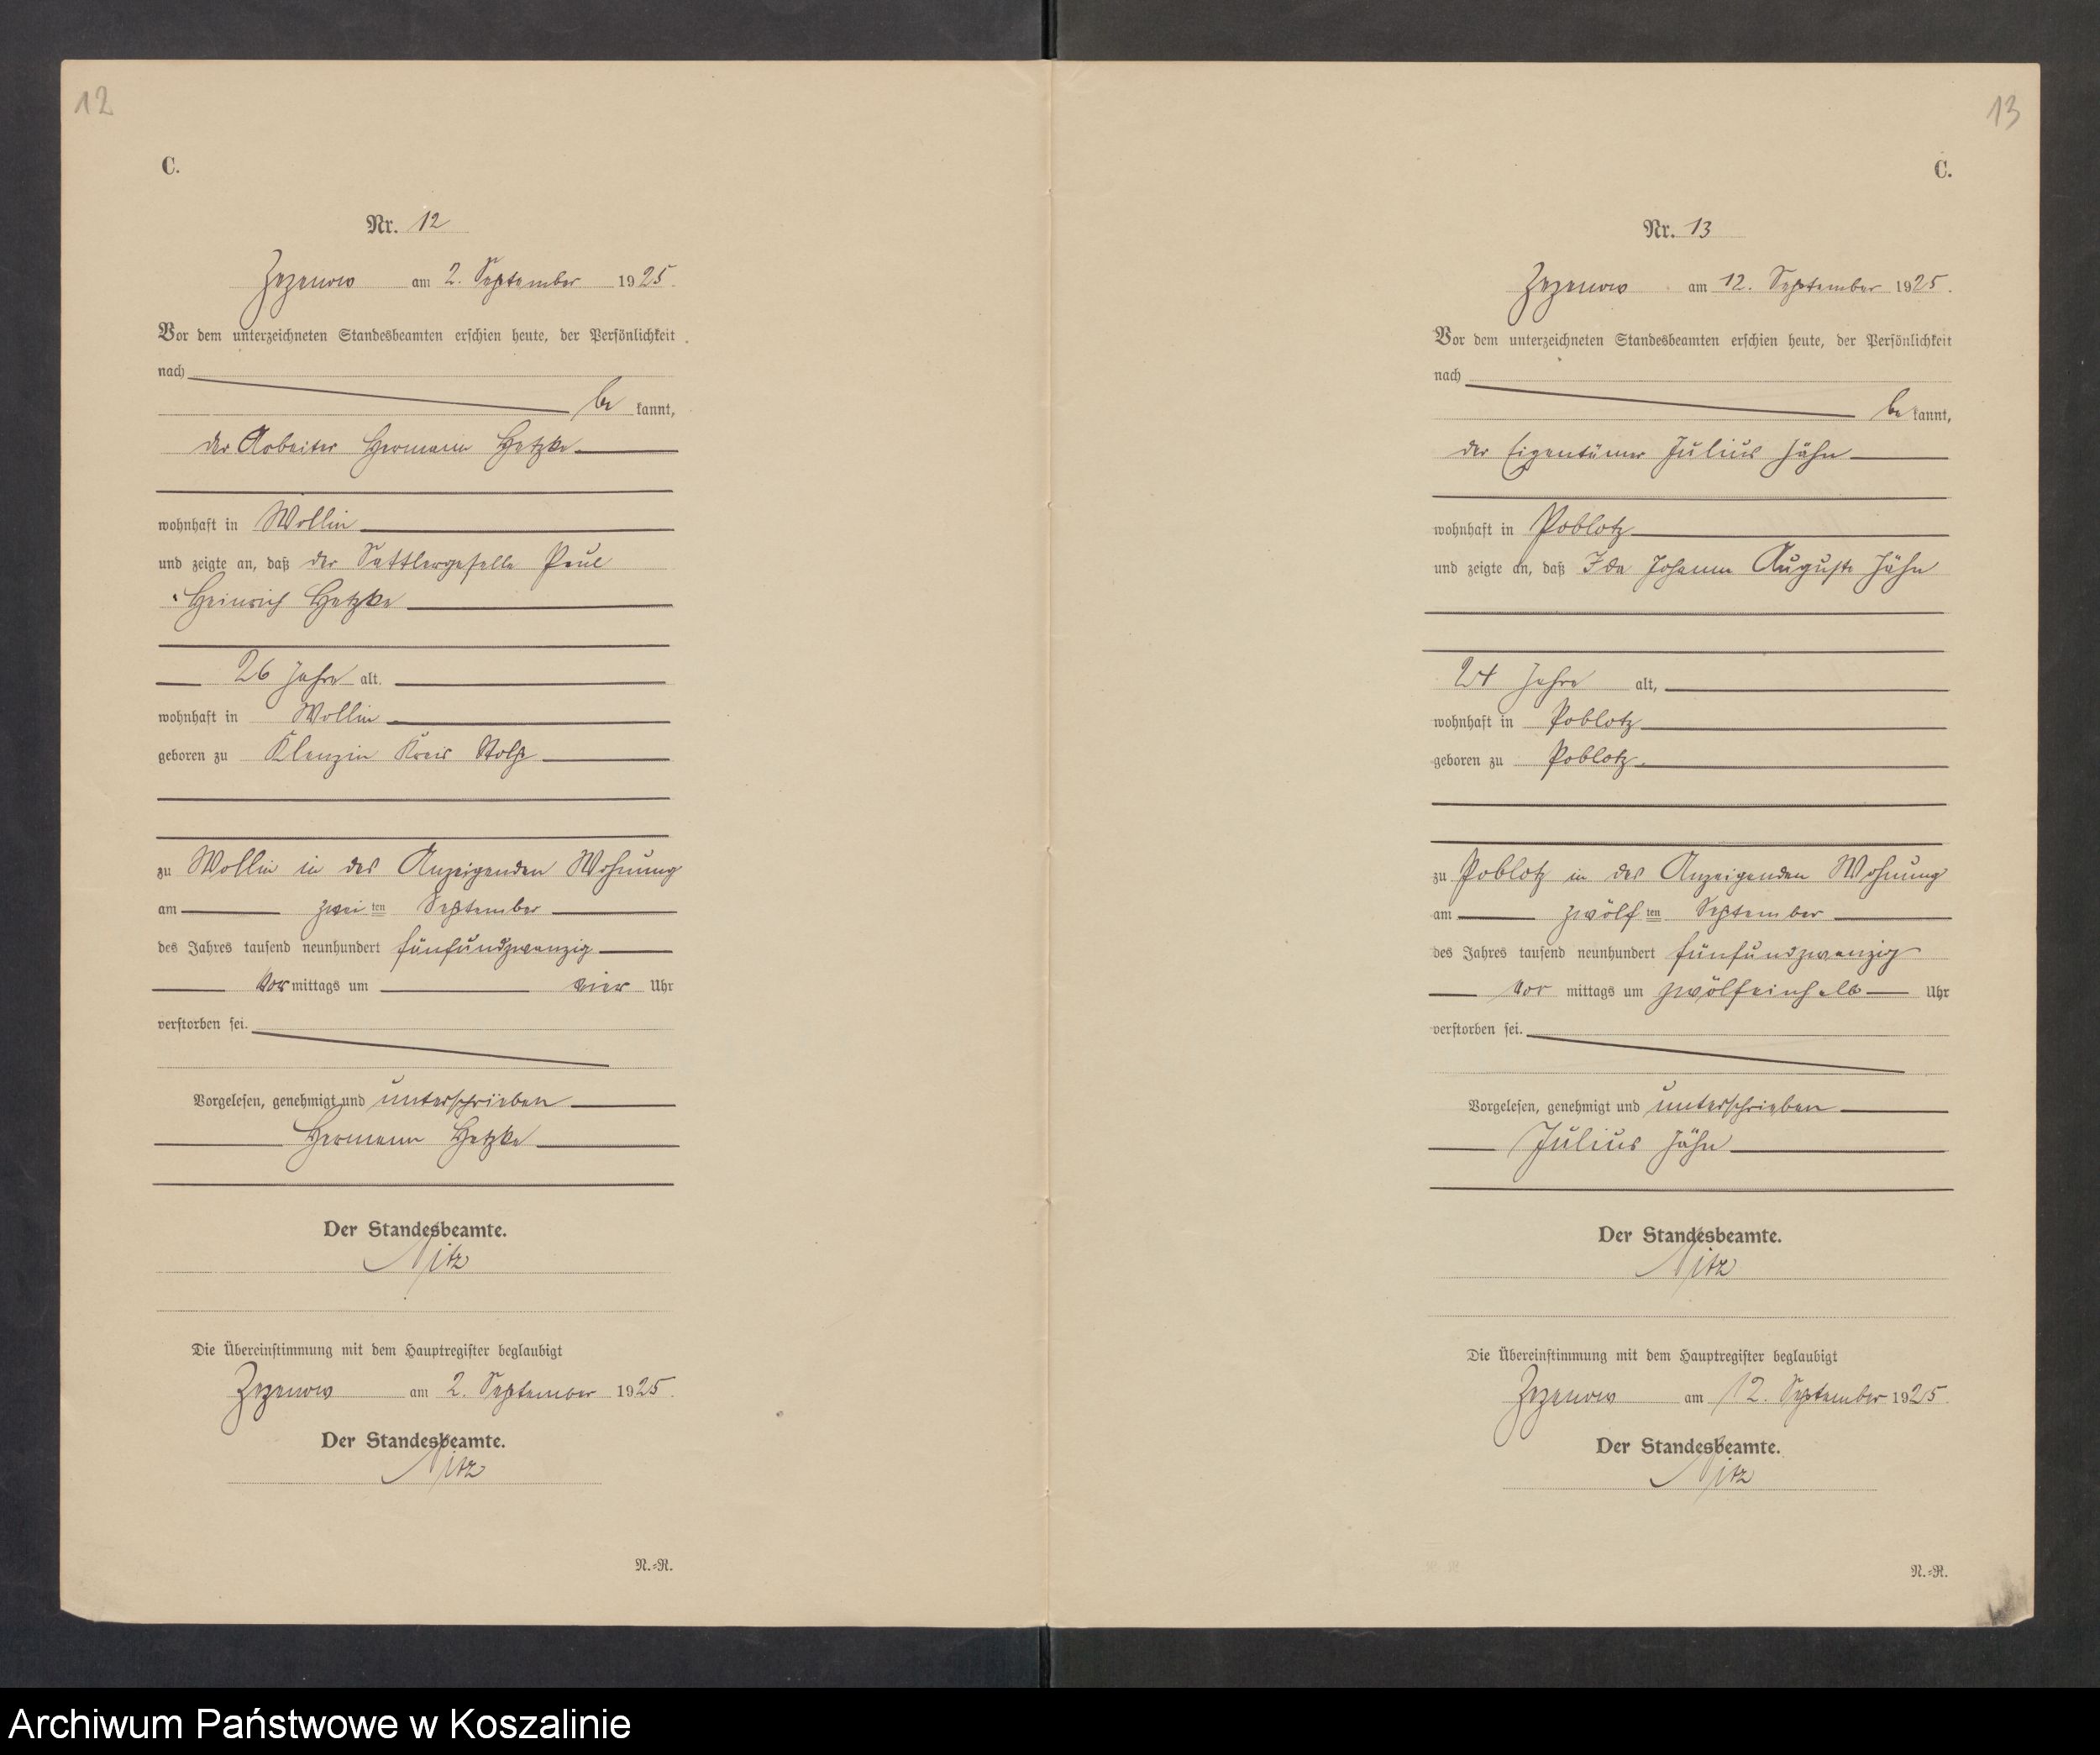 12
C.
Nr. 12
Zezenow am 2. September 1925.
Vor dem unterzeichneten Standesbeamten erschien heute, der Persönlichkeit
nach
be kannt,
der Arbeiter Hermann Hetzke
wohnhaft in Wollin
und zeigte an, daß der Sattlergeselle Paul
Heinrich Hetzke
26 Jahre alt.
wohnhaft in Wollin
geboren zu Klenzin Kreis Stolp
zu Wollin in des Anzeigenden Wohnung
am zwei ten September
des Jahres tausend neunhundert fünfundzwanzig
Vor mittags um vier Uhr
verstorben sei.
Vorgelesen, genehmigt und unterschrieben
Hermann Hetzke
Der Standesbeamte.
Nitz
Die Übereinstimmung mit dem Hauptregister beglaubigt
Zezenow am 2. September 1925.
Der Standesbeamte.
Nitz
N.=R.
13
C.
Nr. 13
Zezenow am 12. September 1925.
Vor dem unterzeichneten Standesbeamten erschien heute, der Persönlichkeit
nach
be kannt,
der Eigentümer Julius Jähn
wohnhaft in Poblotz
und zeigte an, daß Ida Johanna Auguste Jähn
24 Jahre alt,
wohnhaft in Poblotz
geboren zu Poblotz
zu Poblotz in des Anzeigenden Wohnung
am zwölf ten September
des Jahres tausend neunhundert fünfundzwanzig
Vor mittags um zwölfeinhalb Uhr
verstorben sei.
Vorgelesen, genehmigt und unterschrieben
Julius Jähn
Der Standesbeamte.
Nitz
Die Übereinstimmung mit dem Hauptregister beglaubigt
Zezenow am 12. September 1925.
Der Standesbeamte.
Nitz
N.=R.
Archiwum Państwowe w Koszalinie